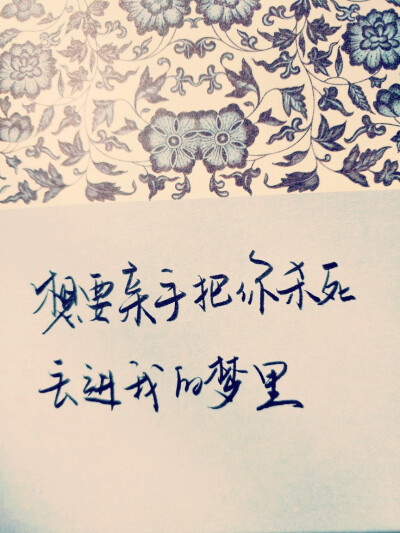 想要亲手把你杀死
丢进我的梦里